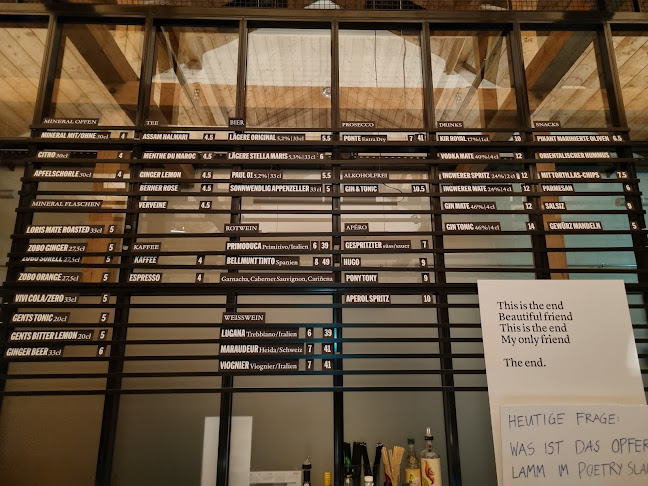 MINERAL OFFEN
MINERAL MIT/OHNE 30cl 4
CITRO 30cl 4
APFELSCHORLE 30cl 4
MINERAL FLASCHEN
LORIS MATE ROASTED 33cl 5
ZOBO GINGER 27.5cl 5
ZOBO SORELL 27.5cl 5
ZOBO ORANGE 27.5cl 5
VIVI COLA/ZERO 33cl 5
GENTS TONIC 20cl 5
GENTS BITTER LEMON 20cl 5
GINGER BEER 33cl 6
TEE
ASSAM HALMARI 4.5
MENTHE DU MAROC 4.5
GINGER LEMON 4.5
BERNER ROSE 4.5
VERVEINE 4.5
KAFFEE
KAFFEE 4
ESPRESSO 4
BIER
LÄGERE ORIGINAL 5,2% | 33cl 5.5
LÄGERE STELLA MARIS 5,3% | 33cl 6
PAUL 01 5,2% | 33cl 5.5
SONNWENDLIG APPENZELLER 33cl 5
ROTWEIN
PRIMODUCA Primitivo/Italien 6 39
BELLMUNT TINTO Spanien 8 49
Garnacha, Cabernet Sauvignon, Cariñena
WEISSWEIN
LUGANA Trebbiano/Italien 6 39
MARAUDEUR Heida/Schweiz 7 41
VIOGNIER Viognier/Italien 7 41
PROSECCO
PONTE Extra Dry 7 41
ALKOHOLFREI
GIN & TONIC 10.5
APÉRO
GESPRITZTER süss/sauer 7
HUGO 9
PONY TONY 9
APEROL SPRITZ 10
DRINKS
KIR ROYAL 12% | 1cl 10
VODKA MATE 40% | 4cl 12
INGWERER SPRITZ 24% | 2cl 12
INGWERER MATE 24% | 4cl 12
GIN MATE 46% | 4cl 12
GIN TONIC 46% | 4cl 14
SNACKS
PIKANT MARINIERTE OLIVEN 6.5
ORIENTALISCHER HUMMUS
MIT TORTILLAS-CHIPS 7.5
PARMESAN 6
SALSIZ 9
GEWÜRZ MANDELN 5
This is the end
Beautiful friend
This is the end
My only friend
The end.
HEUTIGE FRAGE:
WAS IST DAS OPFER
LAMM IM POETRY SLA